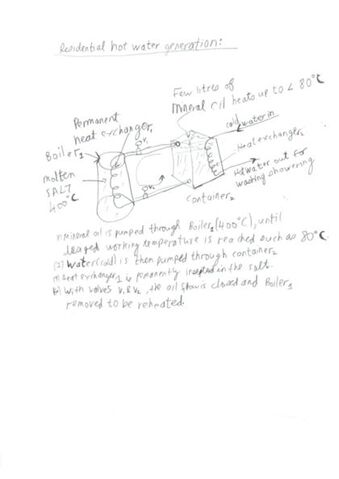 Residential hot water generation:
Few litres of
mineral oil heats up to < 80°C
Permanent
heat exchanger₁
cold water in
Boiler₁
Heat exchanger₂
molten
SALT
400°C
V₁
V₂
Hot water out for
washing showering
container₂
Mineral oil is pumped through Boiler₁ (400°C), until
working temperature is reached such as 80°C.
(2) Water (cold) is then pumped through container₂
heat exchanger₁ is permanently in the salt.
With valves V₁ & V₂, the oil flow is closed and Boiler₁
removed to be reheated.